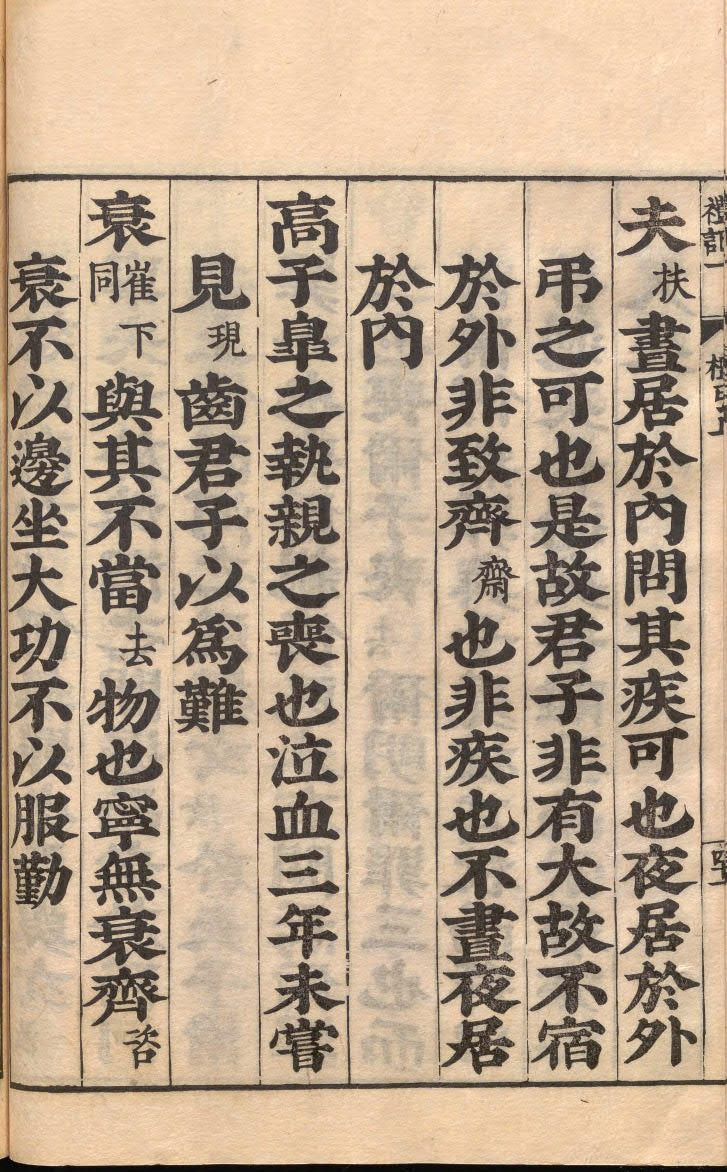 夫扶晝居於內問其疾可也夜居於外
弔之可也是故君子非有大故不宿
於外非致齊齋也非疾也不晝夜居
於內
高子臯之執親之喪也泣血三年未嘗
見現齒君子以爲難
衰催同下與其不當去物也寧無衰齊咨
衰不以邊坐大功不以服勤